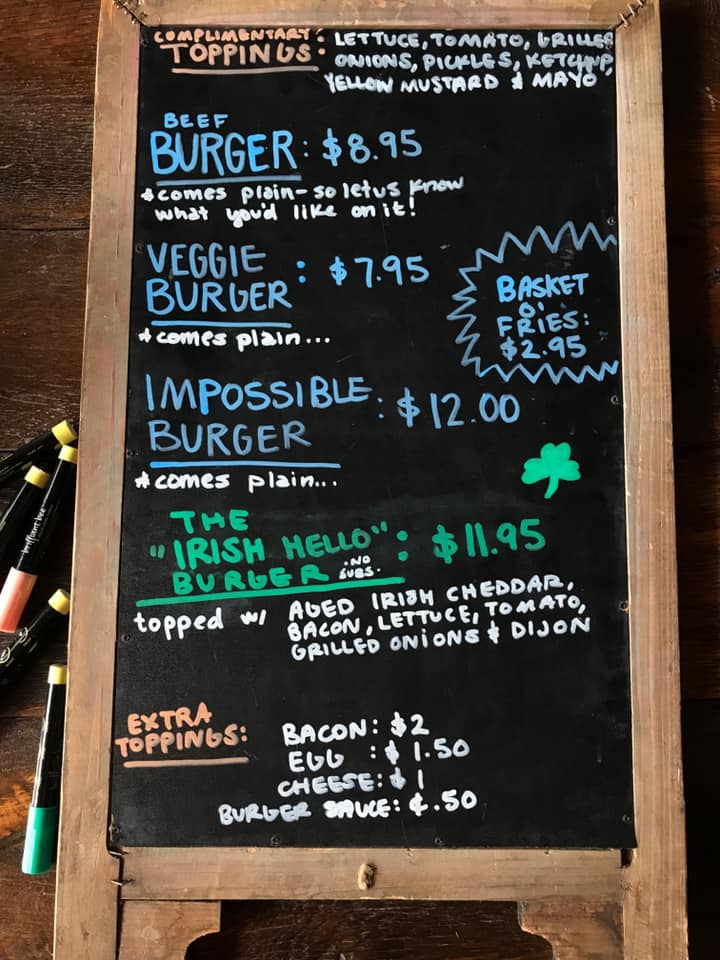 COMPLIMENTARY
TOPPINGS: LETTUCE, TOMATO, GRILLED
ONIONS, PICKLES, KETCHUP,
YELLOW MUSTARD & MAYO
BEEF
BURGER: $8.95
*comes plain- so let us know
what you'd like on it!
VEGGIE
BURGER : $7.95
*comes plain...
BASKET
O'
FRIES:
$2.95
IMPOSSIBLE
BURGER : $12.00
*comes plain...
THE
"IRISH HELLO"
BURGER : $11.95
.NO
SUBS.
topped w/ AGED IRISH CHEDDAR,
BACON, LETTUCE, TOMATO,
GRILLED ONIONS & DIJON
EXTRA
TOPPINGS:
BACON: $2
EGG : $1.50
CHEESE: $1
BURGER SAUCE: ¢.50
brilliant